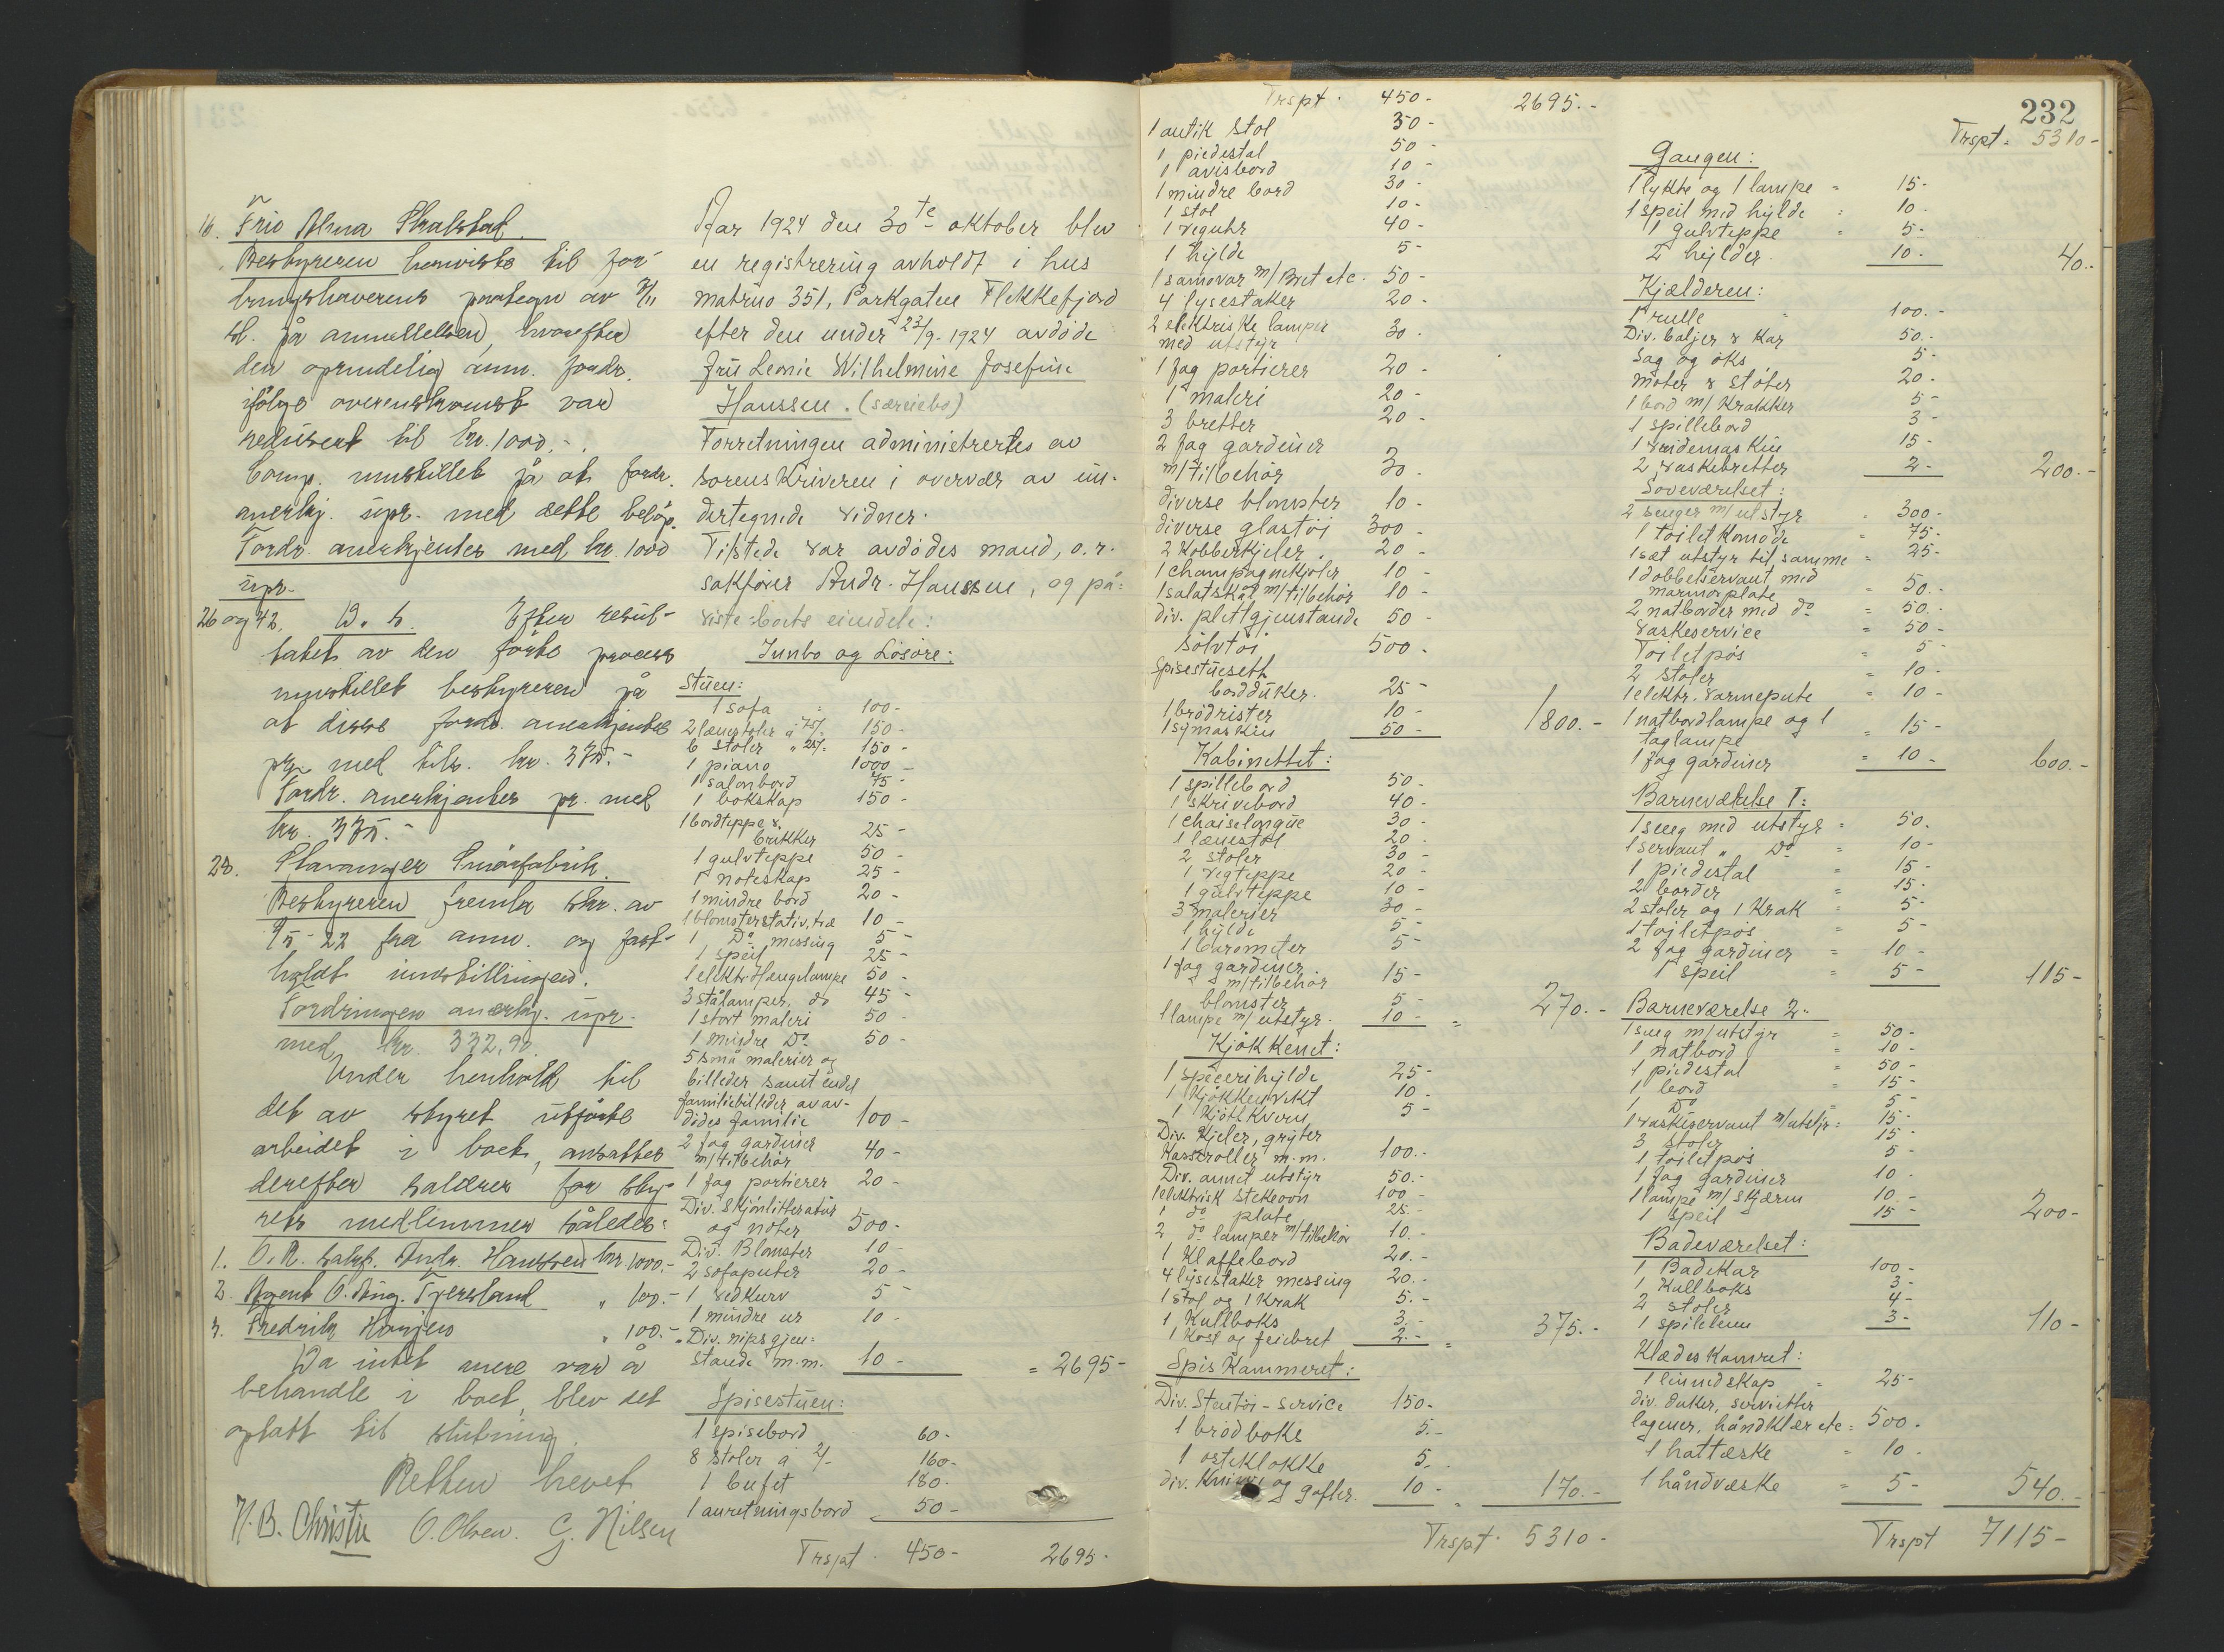 16. Frio Alma Skalstad.
Bestyreren henviste til for-
bringshaverens paategn av 7/11
på anmeldelsen, hvorefter
den oprindelig anm. fordr.
ifølge overenskomst var
redusert til kr. 1000.-.
Comp. innstillet på at fordr.
anerkj. upr. med dette beløp.
Fordr. anerkjentes med kr. 1000
upr.
26 og 42. D. s. Efter resul-
tatet av den førte process
innstillet bestyreren på
at disse fordr. anerkjentes
pr. med tils. kr. 375.-
Fordr. anerkjentes pr. med
kr. 375.-
28. Stavanger Smørfabrik.
Bestyreren fremla skr. av
9/5-22 fra anm. og fast-
holdt innstillingen.
Fordringen anerkj. upr.
med kr. 332,90.
Under henhold til
det av styret utførte
arbeidet i boet, ansattes
derefter salærer for sty-
rets medlemmer således:
1. O.R. sakf. Andr. Hanssen kr. 1000.-
2. Agent O. Ting. Tjersland " 100.-
3. Fredrik " 100.-
Da intet mere var å
behandle i boet, blev det
optatt til slutning.
Retten hevet
N. B. Christie O. Olsen. G. Nilsen
Aar 1924 den 30te oktober blev
en registrering avholdt i hus
matrno 351, Parkgaten Flekkefjord
efter den under 23/9-1924 avdøde
Frú Leonie Wilhelmine Josefine
Hanssen. (særeiebo)
Forretningen administrertes av
sorenskriveren i overvær av un-
dertegnede vidner.
Tilstede var avdødes mand, o.r.
sakfører Andr. Hanssen, og på-
viste boets eiendele:
Innbo og Løsøre:
Stuen:
1 sofa " 100-
2 lænestoler a 75/- 150-
6 stoler " 25/- 150-
1 piano 1000-
1 salonbord 75-
1 bokskap 150-
1 bordteppe &
brikker 25-
1 gulvteppe 50-
1 noteskap 25-
1 mindre bord 20-
1 blomsterstativ, træ 10-
1 Do messing 5-
1 speil 25-
1 elektr. Hængelampe 50-
3 stålamper, do 45-
1 stort maleri 50-
1 mindre Do 50-
5 små malerier og
billeder samt endel
familiebilleder av av-
dødes familie 100-
2 fag gardiner
m/tilbehør 40-
1 fag portierer 20-
Div. Skjønlitteratur
og noter 500-
Div. Blomster 10-
2 sofaputer 20-
1 vedkurv 5-
1 mindre ur 10-
Div. nipsgjen-
stande m.m. 10- = 2695-
Spisestuen:
1 spisebord 60-
8 stoler à 2/- 160-
1 bufet 180-
1 anretningsbord 50-
Trspt. 450- 2695-
Trspt. 450- 2695.-
1 antik stol 30-
1 piedestal 50-
1 avisbord 10-
1 mindre bord 30-
1 stol 10-
1 veguhr 40-
1 hylde 5-
1 samovar m/Bret etc. 50-
4 lysestaker 20-
2 elektriske lamper
med utstyr 30-
1 fag portierer 20-
1 maleri 20-
3 bretter 20-
2 fag gardiner
m/tilbehør 30-
diverse blomster 10-
diverse glastøi 300-
2 Kobberkjeler 20-
1 champagnekjøler 10-
1 salatskål m/tilbehør 10-
div. plettgjenstande 50-
Sølvtøi 500-
Spisestuesett
bordduker. 25-
1 brødrister 10-
1 symaskin 50- 1800.-
Kabinettet:
1 spillebord 50-
1 skrivebord 40-
1 chaiselongue 30-
1 lænestol 20-
2 stoler 30-
1 vegteppe 20-
1 gulvteppe 10-
3 malerier 30-
1 hylde 5-
1 barometer 5-
1 fag gardiner
m/tilbehør 15-
blomster 5-
1 lampe m/utstyr. 10- = 270.-
Kjøkkenet:
1 specerihylde 25-
1 Kjøkkenvekt 10-
1 Kjøttkvern 5-
Div. Kjeler, gryter
Kasseroller m.m. 100.-
Div. annet utstyr 50.-
1 elektrisk stekeovn 100-
1 do plate 25.-
2 do lamper m/tilbehør 10.-
1 Klaffebord 20.-
4 lysestaker messing 20.-
1 stol og 1 Krak 5.-
1 Kullboks 3.-
1 Kost og feiebret 2.- = 375.-
Spiskammeret:
Div. Stentøi-service 150-
1 brødboks 5.-
1 osteklokke 5.-
div. Kniver og gafler. 10- = 170.-
Trspt. 5310-
232
Trspt. 5310-
Gangen:
1 lykte og 1 lampe = 15-
1 speil med hylde = 10-
1 gulvteppe = 5-
2 hylder 10- 40.-
Kjælderen:
1 rulle " 100.-
Div. baljer & Kar 50.-
Sag og øks 5-
Moter & støter 20-
1 bord m/ Krakker 5-
1 spillebord 3-
1 vridemaskin 15-
2 vaskebretter 2- 200.-
Soveværelset:
2 senger m/utstyr 300-
1 toiletkomode = 75-
1 sæt utstyr til samme = 25-
1 dobbeltservant med
marmorplate = 50.-
2 natborder med do = 50.-
Vaskeservice = 50-
Toiletpøs = 5-
2 stoler = 10-
1 elektr. varmepute = 10-
1 natbordlampe og 1
taglampe = 15-
1 fag gardiner = 10- 600.-
Barneværelse 1:
1 seng med utstyr = 50.
1 servant " Do = 10-
1 piedestal = 15-
2 border 15-
2 stoler og 1 Krak = 5-
1 toiletpøs = 5-
2 fag gardiner = 10-
1 speil = 5- 115-
Barneværelse 2.
1 seng m/utstyr = 50-
1 natbord = 10-
1 piedestal = 50-
1 bord = 15-
1 Do = 5-
1 vaskeservant m/utstyr = 15-
3 stoler 15-
1 toiletpøs 5-
1 fag gardiner 10-
1 lampe m/skjærm 10.-
1 speil 15- 200-
Badeværelset:
1 Badekar 100-
1 Kullboks 3-
2 stoler 4-
1 3- 110-
Klædeskamret:
1 linnedskap = 25-
div. duker, servietter
lagener, håndklær etc = 500-
1 hatteske = 10-
1 håndveske = 5- 540.-
Trspt 7115-